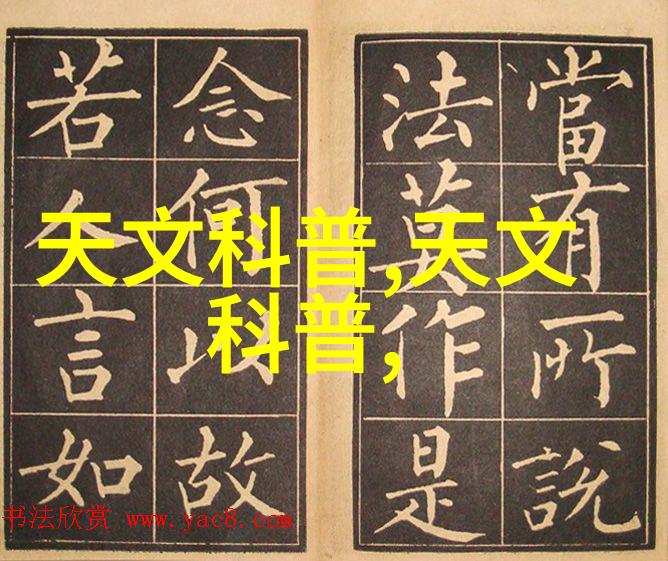 當有所說
法莫作是
念何以故
若人言如
天文科普,天文
科普,
书法欣赏 www.yac8.com